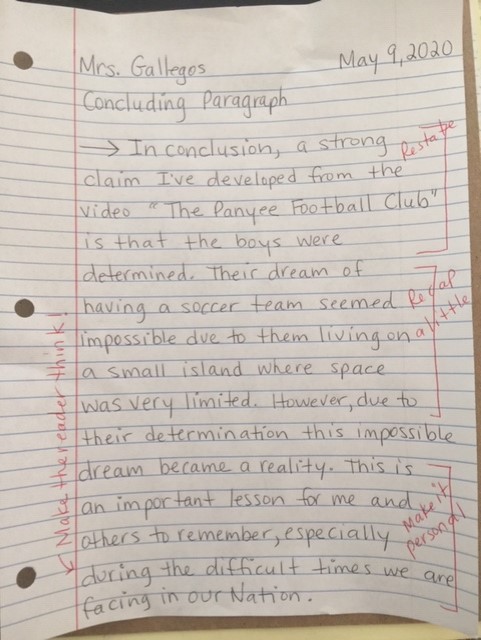 Mrs. Gallegos
May 9, 2020
Concluding Paragraph
→ In conclusion, a strong
claim I've developed from the
video "The Panyee Football Club"
is that the boys were
determined. Their dream of
having a soccer team seemed
impossible due to them living on
a small island where space
was very limited. However, due to
their determination this impossible
dream became a reality. This is
an important lesson for me and
others to remember, especially
during the difficult times we are
facing in our Nation.
Restate
Recap
a little
Make it
personal
← Make the reader think!